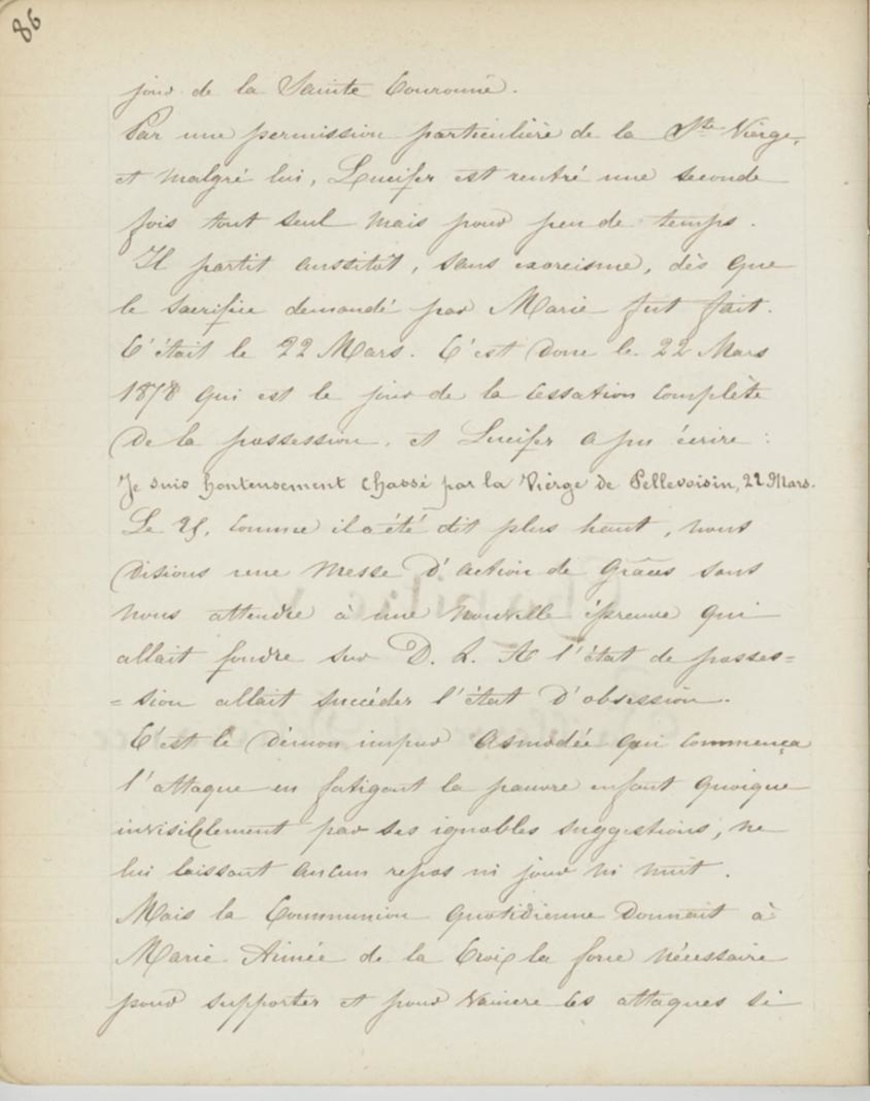 86
jour de la Sainte Couronne.
Par une permission particulière de la Ste Vierge,
et malgré lui, Lucifer est rentré une seconde
fois tout seul mais pour peu de temps.
Il partit aussitôt, sans exorcisme, dès que
le sacrifice demandé par Marie fut fait.
C'était le 22 Mars. C'est donc le 22 Mars
1878 qui est le jour de la cessation complète
de la possession, et Lucifer a pu écrire :
Je suis honteusement chassé par la Vierge de Pellevoisin, 22 Mars.
Le 25, comme il a été dit plus haut, nous
disions une messe d'action de grâces sans
nous attendre à une nouvelle épreuve qui
allait fondre sur D. L. A l'état de posses=
=sion allait succéder l'état d'obsession.
C'est le démon impur Asmodée qui commença
l'attaque en fatigant la pauvre enfant quoique
invisiblement par ses ignobles suggestions, ne
lui laissant aucun repos ni jour ni nuit.
Mais la Communion quotidienne donnait à
Marie Aimée de la Croix la force nécessaire
pour supporter et pour vaincre les attaques si